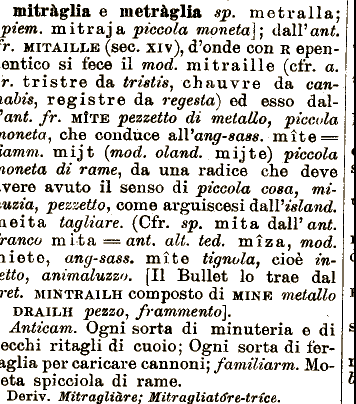 mitràglia e metràglia sp. metralla;
piem. mitraja piccola moneta]; dall'ant.
fr. MITAILLE (sec. XIV), d'onde con R epen-
entico si fece il mod. mitraille (cfr. a.
r. tristre da tristis, chauvre da can-
nabis, registre da regesta) ed esso dal-
'ant. fr. MÎTE pezzetto di metallo, piccola
moneta, che conduce all'ang-sass. mîte=
iamm. mijt (mod. oland. mijte) piccola
moneta di rame, da una radice che deve
vere avuto il senso di piccola cosa, mi-
nuzia, pezzetto, come arguiscesi dall'island.
meita tagliare. (Cfr. sp. mita dall'ant.
franco mita = ant. alt. ted. mîza, mod.
miete, ang-sass. mîte tignola, cioè in-
etto, animaluzzo. [Il Bullet lo trae dal
ret. MINTRAILH composto di MINE metallo
DRAILH pezzo, frammento].
Anticam. Ogni sorta di minuteria e di
ecchi ritagli di cuoio; Ogni sorta di fer-
aglia per caricare cannoni; familiarm. Mo-
eta spicciola di rame.
Deriv. Mitragliàre; Mitragliatóre-tríce.